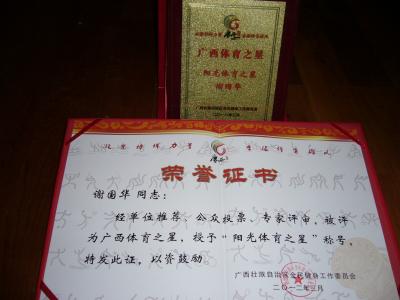 广西体育之星
阳光体育之星
谢国华
荣誉证书
谢国华 同志：
经单位推荐，公众投票，专家评审，被评
为广西体育之星，授予“阳光体育之星”称号，
特发此证，以资鼓励
广西壮族自治区全民健身工作委员会
二〇一二年三月